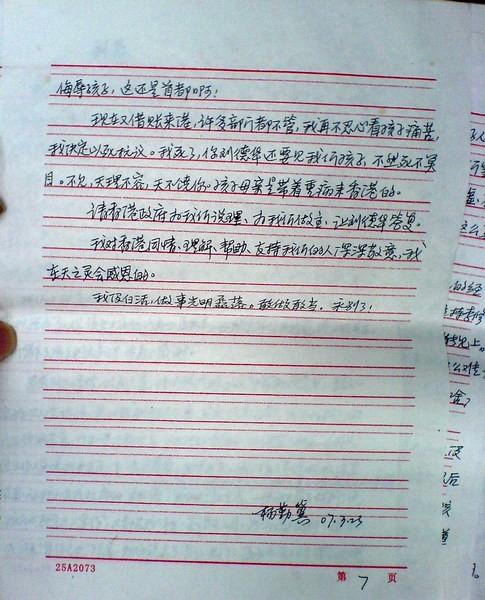 侮辱孩子，这还是首都啊！
现在又借账来港，许多部门都不管，我再不忍心看孩子痛苦，
我决定以死抗议。我死了，你刘德华还要见我们孩子，不然死不冥
目。不见，天理不容，天不饶你。孩子母亲是带着重病来香港的。
请香港政府为我们说理，为我们做主，让刘德华答复。
我对香港同情、理解、帮助、支持我们的人深深敬意，我
在天之灵会感恩的。
我没白活，做事光明磊落。敢做敢当，永别了！
杨勤冀 07.3.23
25A2073
第 7 页